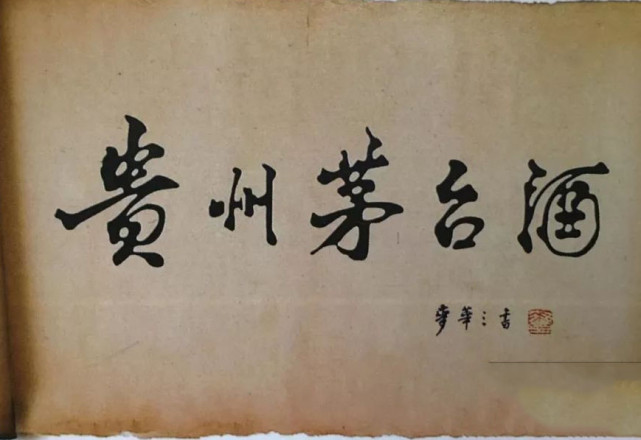 貴州茅台酒
麦華三書